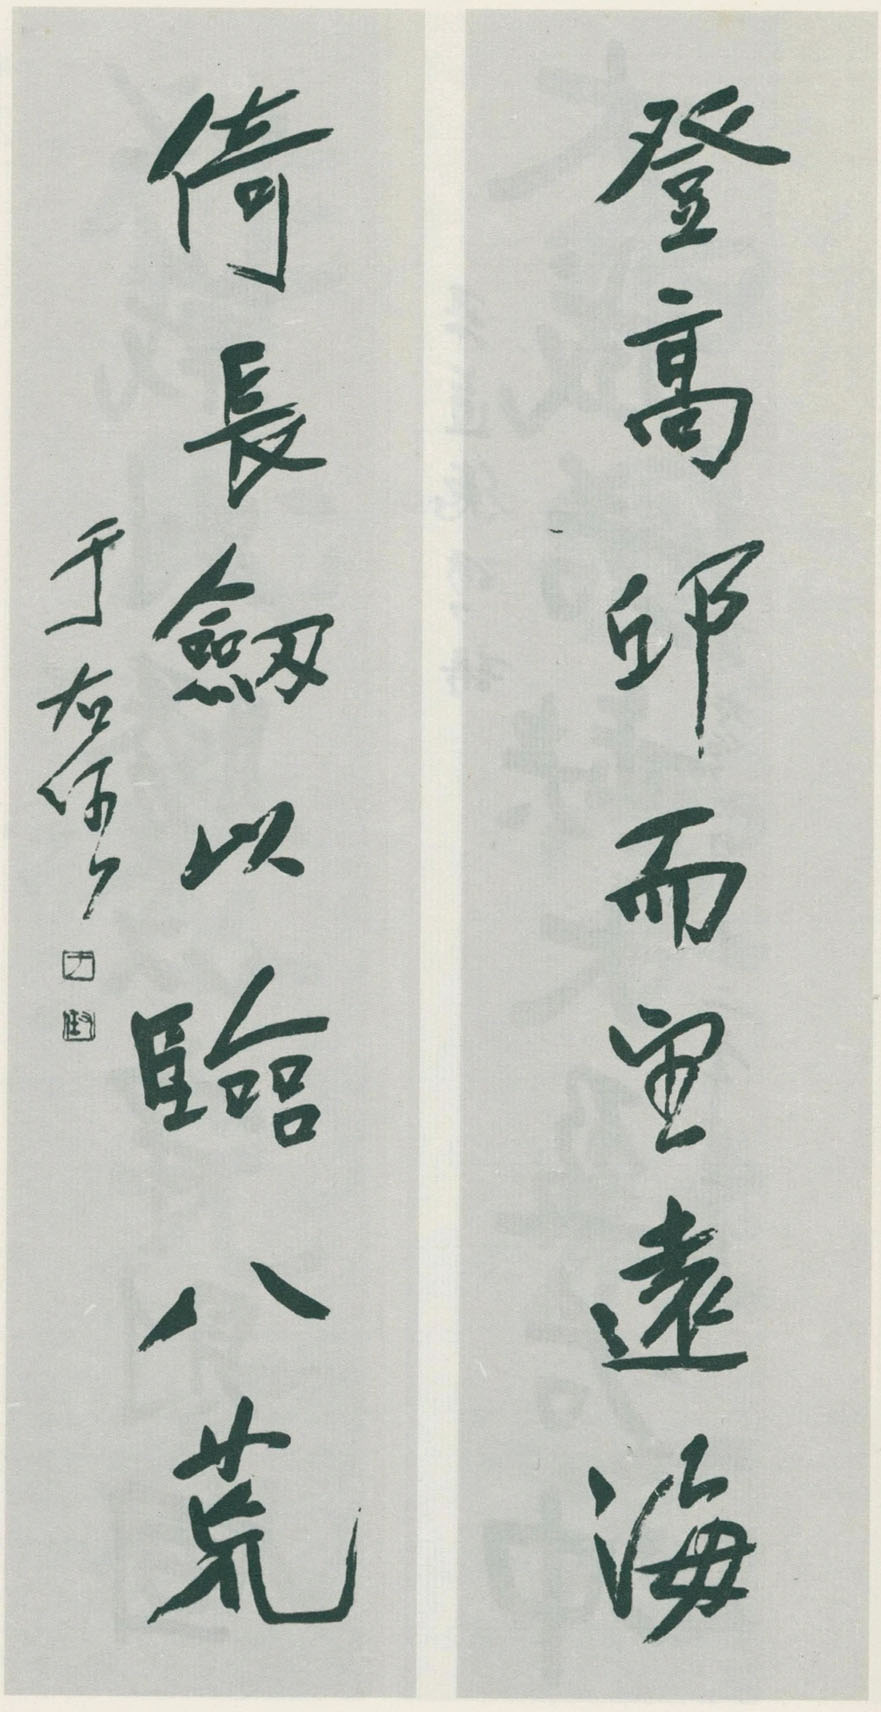 登高邱而望遠海
倚長劔以臨八荒
于右任